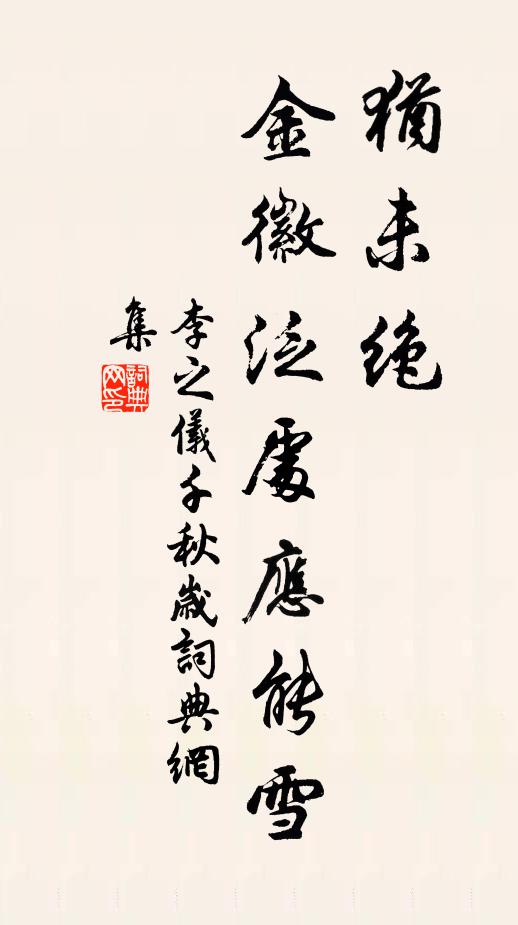 猶未绝
金徽泛處應能雪
李之儀千秋歲詞典網
集
詞典
网印